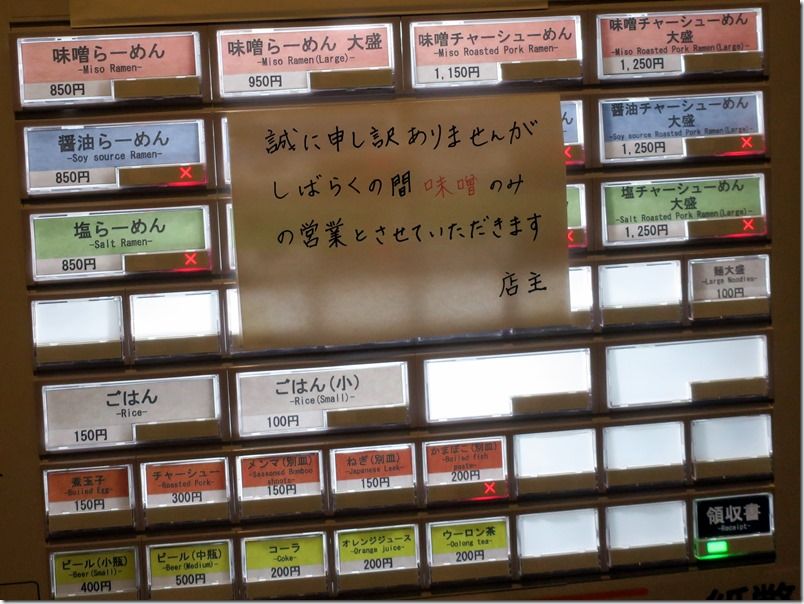 味噌らーめん
-Miso Ramen-
850円
味噌らーめん 大盛
-Miso Ramen(Large)-
950円
味噌チャーシューめん
-Miso Roasted Pork Ramen-
1,150円
味噌チャーシューめん
大盛
-Miso Roasted Pork Ramen(Large)-
1,250円
醤油らーめん
-Soy source Ramen-
850円
醤油チャーシューめん
大盛
-Soy source Roasted Pork Ramen(Large)-
1,250円
塩らーめん
-Salt Ramen-
850円
塩チャーシューめん
大盛
-Salt Roasted Pork Ramen(Large)-
1,250円
誠に申し訳ありませんが
しばらくの間 味噌のみ
の営業とさせていただきます
店主
麺大盛
-Large Noodles-
100円
ごはん
-Rice-
150円
ごはん(小)
-Rice(Small)-
100円
煮玉子
-Boiled Egg-
150円
チャーシュー
-Roasted Pork-
300円
メンマ(別皿)
-Seasoned Bamboo
shoots-
150円
ねぎ(別皿)
-Japanese Leek-
150円
かまぼこ(別皿)
-Boiled fish
paste-
200円
ビール(小瓶)
-Beer(Small)-
400円
ビール(中瓶)
-Beer(Medium)-
500円
コーラ
-Coke-
200円
オレンジジュース
-Orange juice-
200円
ウーロン茶
-Oolong tea-
200円
領収書
-Receipt-